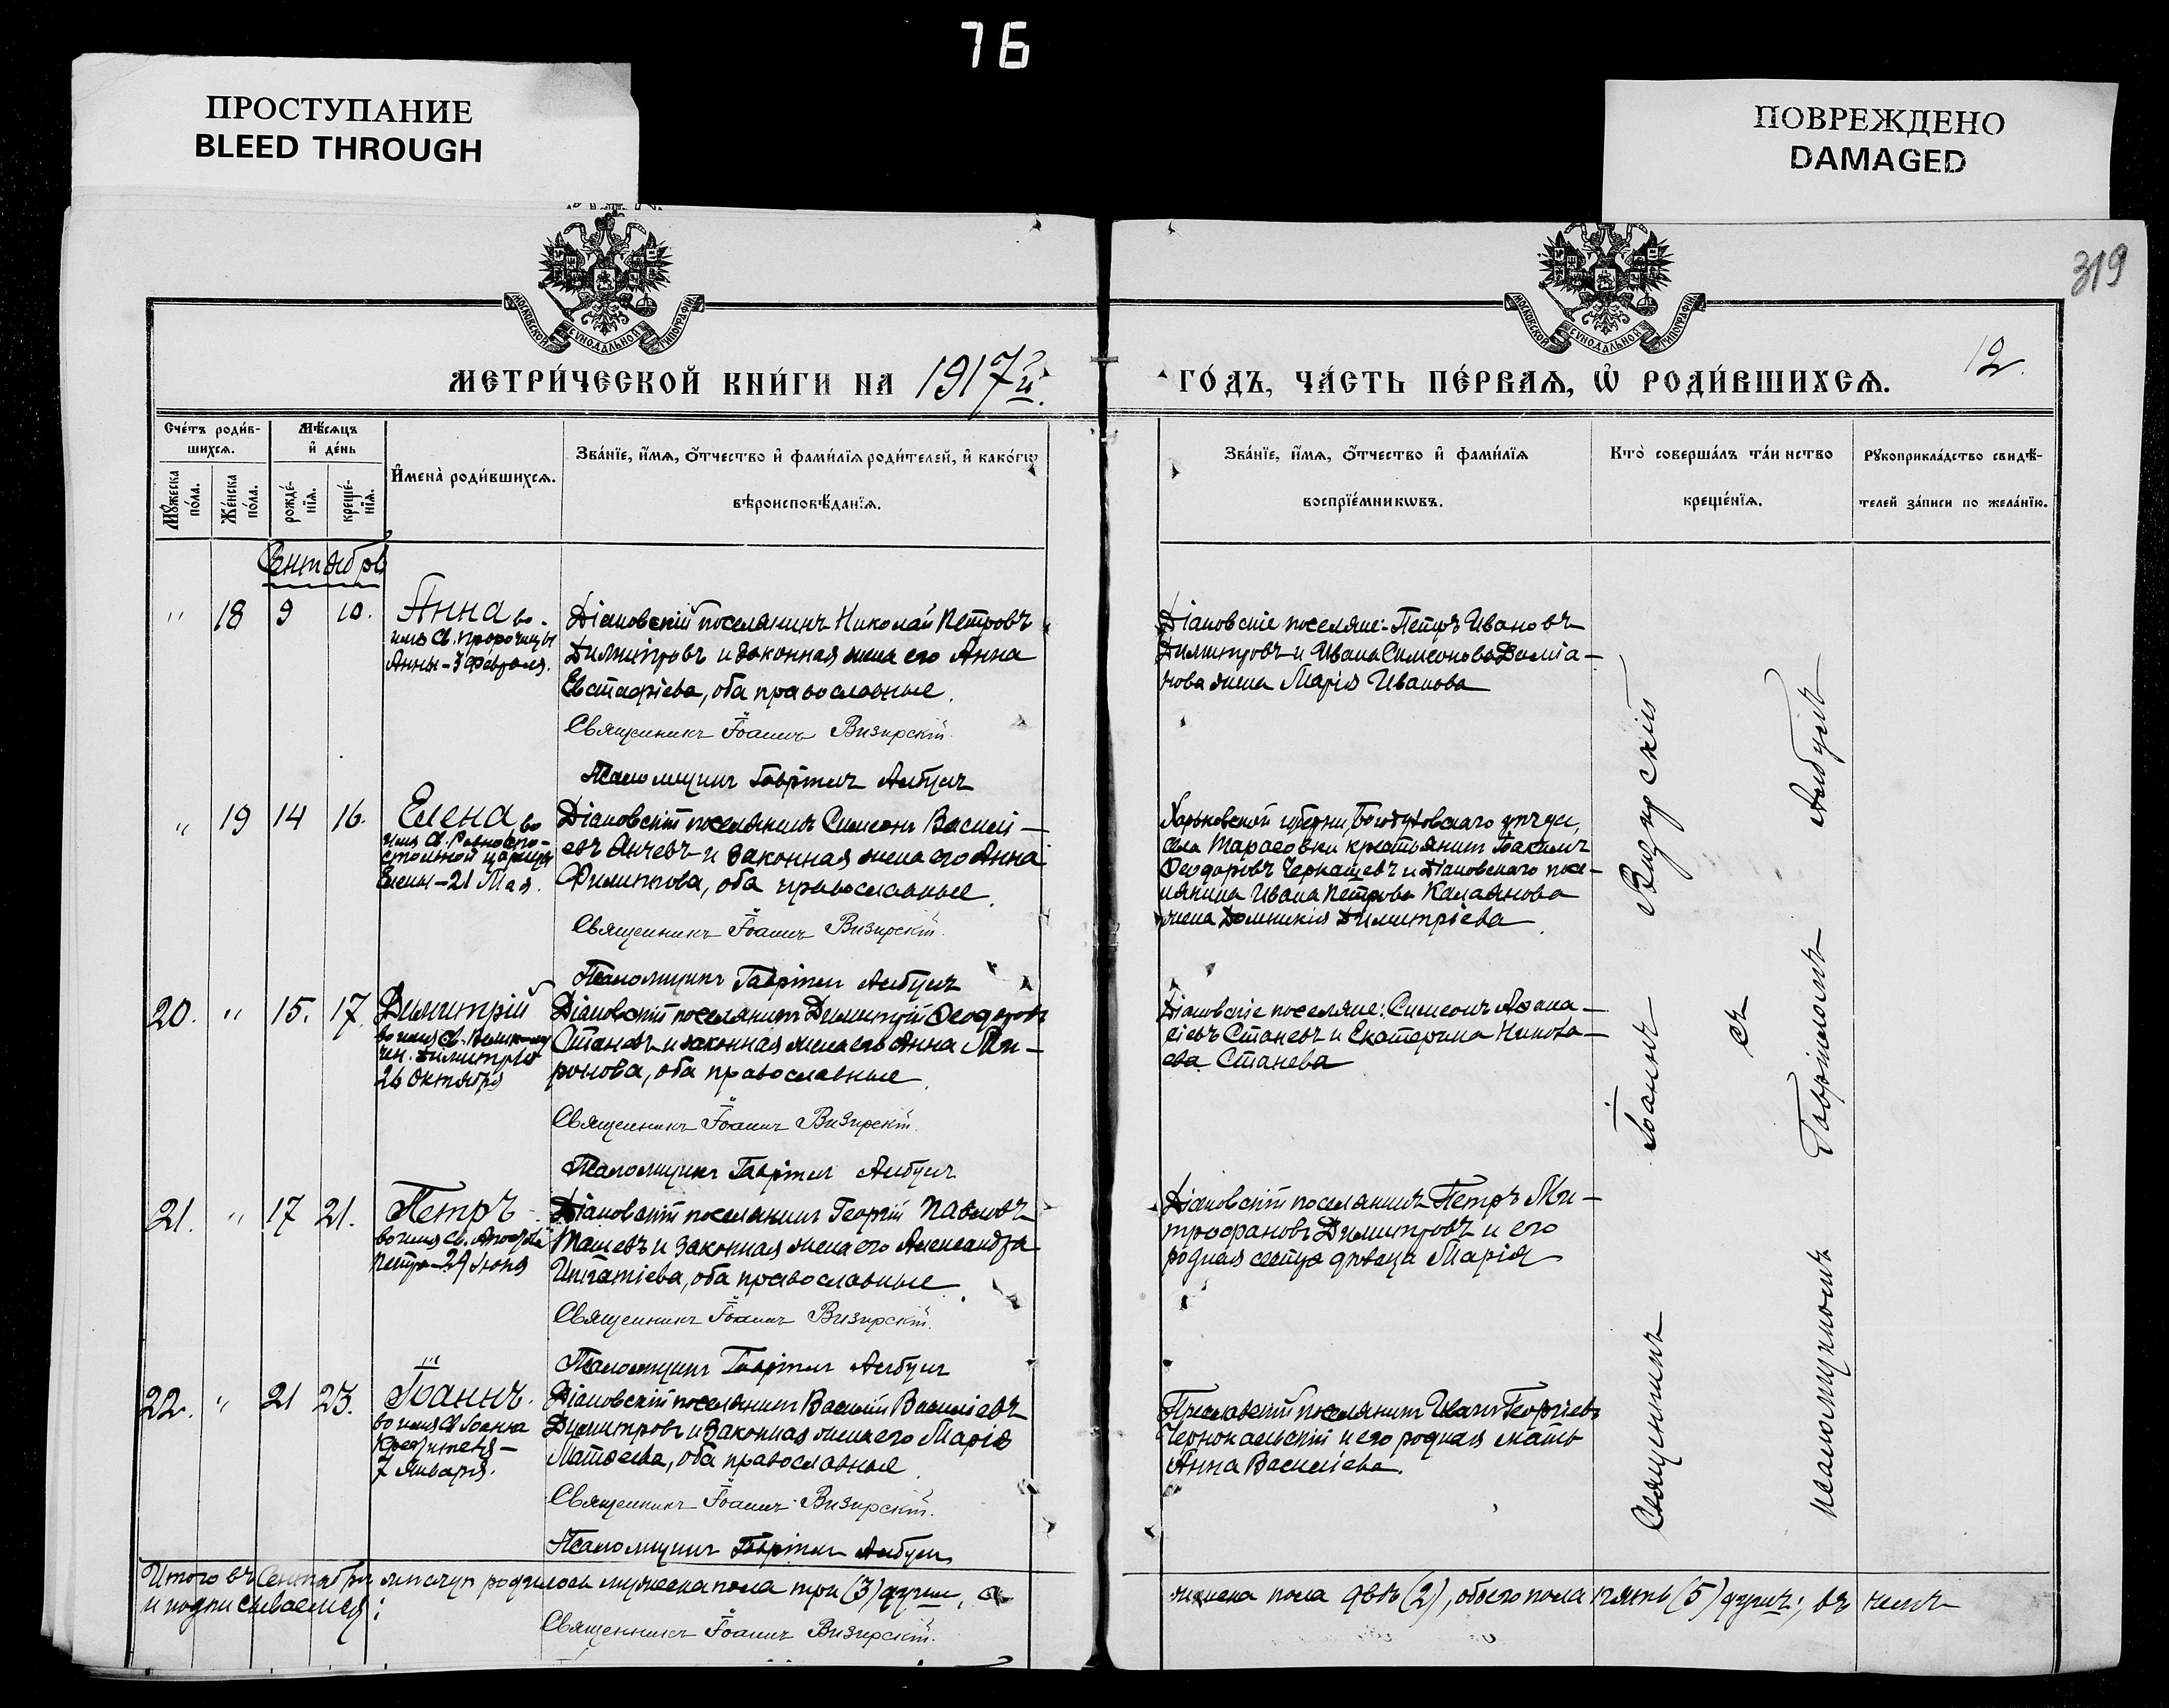 76
ПРОСТУПАНИЕ
BLEED THROUGH
ПОВРЕЖДЕНО
DAMAGED
319
МОСКОВСКОЙ СѴНОДАЛЬНОЙ ТИПОГРАФІИ
МОСКОВСКОЙ СѴНОДАЛЬНОЙ ТИПОГРАФІИ
12.
МЕТРИ́ЧЕСКОЙ КНИ́ГИ НА 1917й.
ГО́ДЪ, ЧА́СТЬ ПЕ́РВАѦ, Ѡ҆ РОДИ́ВШИХСѦ.
Сче́тъ роди́в-
шихсѧ.
Мꙋжеска по́ла.
Же́нска по́ла.
Мѣ́сѧцъ
и҆ де́нь
рожде́-
нїѧ.
креще́-
нїѧ.
И҆мена̀ роди́вшихсѧ.
Зва́нїе, и҆́мѧ, о҆́тчество и҆ фами́лїѧ роди́телей, и҆ како́гѡ
вѣроисповѣ́данїѧ.
Зва́нїе, и҆́мѧ, о҆́тчество и҆ фами́лїѧ
воспрїе́мникѡвъ.
Кто̀ соверша́лъ та́инство
креще́нїѧ.
Рꙋкоприкла́дство свидѣ́-
телей за́писи по жела́нїю.
Сентябрь
" 18 9 10. Анна во
имя Св. Пророчицы
Анны - 3 Февраля.
Діановскій поселянинъ Николай Петровъ
Димитровъ и законная жена его Анна
Евстафіева, оба православные.
Священникъ Іоаннъ Визирскій.
Псаломщикъ Гавріилъ Албулъ
Діановскіе поселяне: Петръ Ивановъ
Димитровъ и Ивана Симеонова Даміа-
нова жена Марія Иванова
" 19 14 16. Елена во
имя Св. Равноапо-
стольной царицы
Елены - 21 Мая.
Діановскій поселянинъ Симеонъ Василі-
евъ Анчевъ и законная жена его Анна
Филиппова, оба православные.
Священникъ Іоаннъ Визирскій.
Псаломщикъ Гавріилъ Албулъ
Харьковской губерніи, Богодуховскаго уѣзда,
села Тарасовки крестьянинъ Іоакимъ
Ѳеодоровъ Чернашевъ и Діановскаго посе-
лянина Ивана Петрова Калаянова
жена Домникія Димитріева.
20. " 15. 17. Димитрій
во имя Св. Великому-
чен. Димитрія
26 Октября
Діановскій поселянинъ Димитрій Ѳеодоровъ
Станевъ и законная жена его Анна Ми-
ронова, оба православные.
Священникъ Іоаннъ Визирскій.
Псаломщикъ Гавріилъ Албулъ
Діановскіе поселяне: Симеонъ Аѳана-
сіевъ Станевъ и Екатерина Никола-
ева Станева
21. " 17 21. Петръ
во имя Св. Апостола
Петра - 29 Іюня
Діановскій поселянинъ Георгій Павловъ
Ташевъ и законная жена его Александра
Игнатіева, оба православные.
Священникъ Іоаннъ Визирскій.
Псаломщикъ Гавріилъ Албулъ
Діановскій поселянинъ Петръ Ми-
трофановъ Димитровъ и его
родная сестра дѣвица Марія
22. " 21 23. Іоаннъ.
во имя Св Іоанна
Крестителя -
7 Января.
Діановскій поселянинъ Василій Василіевъ
Димитровъ и законная жена его Марія
Матѳеева, оба православные.
Священникъ Іоаннъ Визирскій.
Псаломщикъ Гавріилъ Албулъ
Преславскій поселянинъ Иванъ Георгіевъ
и его родная мать
Анна Василіева.
Священникъ Іоаннъ Визирскій
съ
псаломщикомъ Гавріиломъ Албулъ
Итого въ Сентябрѣ мѣсяцѣ родилось мужеска пола три (3) души, а
женска пола двѣ (2), обоего пола пять (5) душъ; въ чемъ
и подписываемся:
Священникъ Іоаннъ Визирскій.